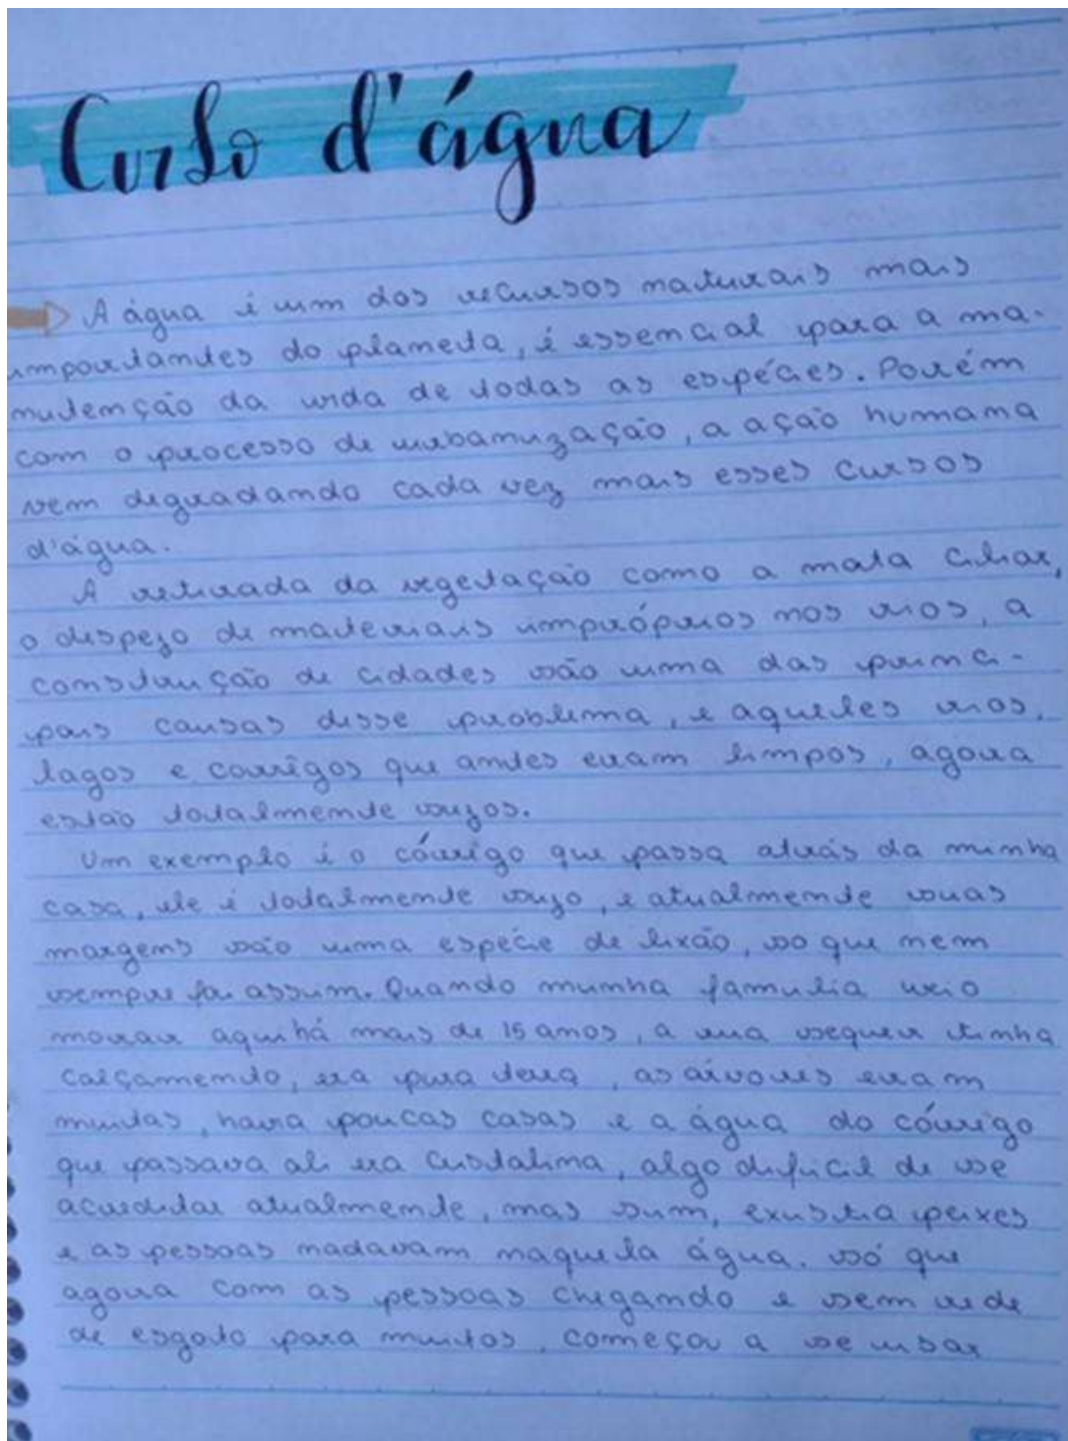 Curso d'água
A água é um dos recursos naturais mais
importantes do planeta, é essencial para a ma-
nutenção da vida de todas as espécies. Porém
com o processo de urbanização, a ação humana
vem degradando cada vez mais esses cursos
d'água.
A retirada da vegetação como a mata ciliar,
o despejo de materiais impróprios nos rios, a
construção de cidades são uma das princi-
pais causas desse problema, e aqueles rios,
lagos e corrêgos que antes eram limpos, agora
estão totalmente sujos.
Um exemplo é o córrigo que passa atrás da minha
casa, ele é totalmente sujo, e atualmente suas
margens são uma espécie de lixão, so que nem
sempre foi assim. Quando minha familia veio
morar aqui há mais de 15 anos, a rua sequer tinha
calçamento, era pura terra, as árvores eram
muitas, havia poucas casas e a água do córrigo
que passava ali era cristalina, algo dificil de se
acreditar atualmente, mas sim, existia peixes
e as pessoas nadavam naquela água. só que
agora com as pessoas chegando e sem rede
de esgoto para muitos, começou a se usar